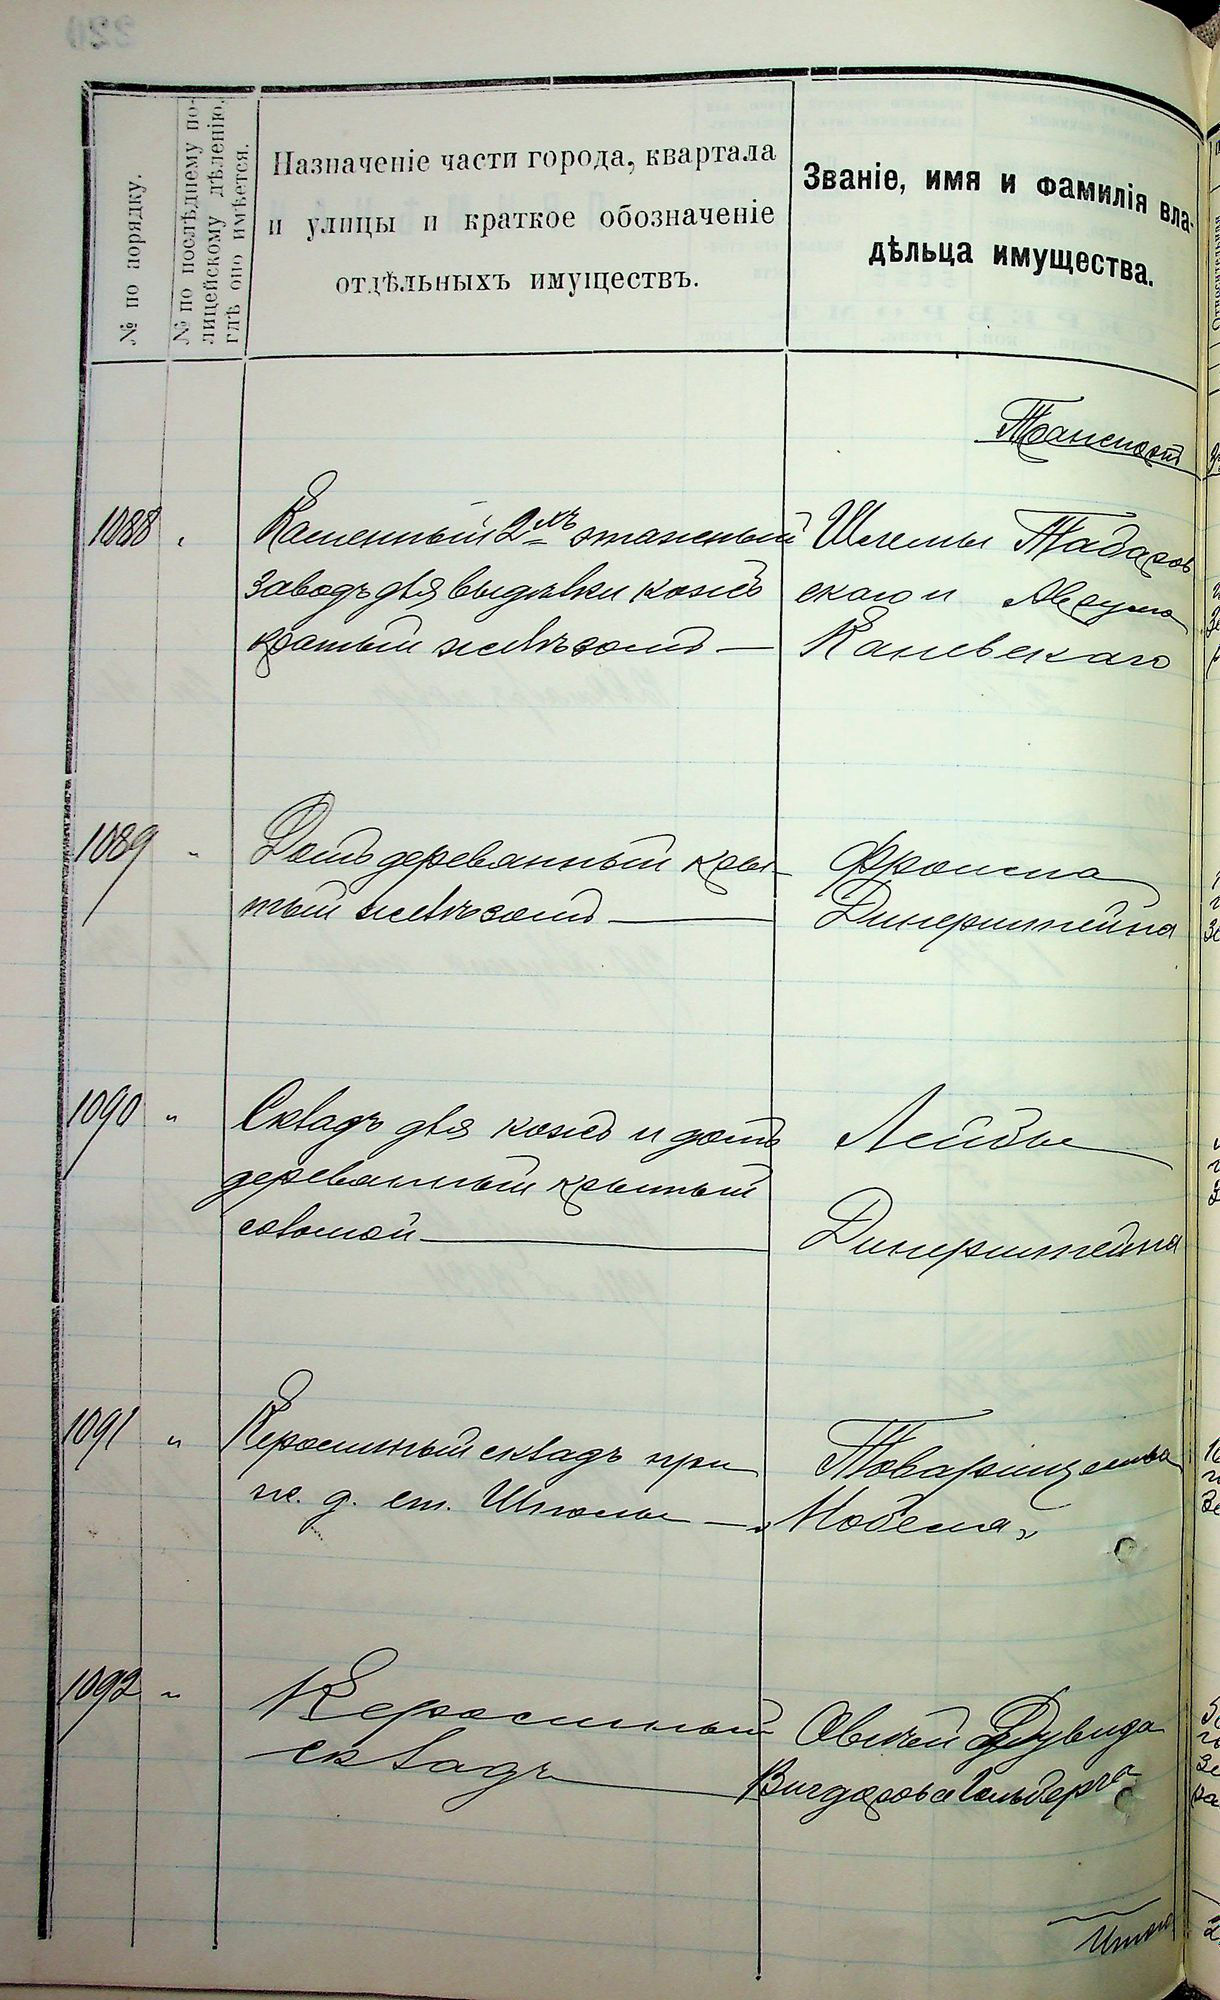 № по порядку.
№ по послѣднему по-
лицейскому дѣленію,
гдѣ оно имѣется.
Назначеніе части города, квартала
и улицы и краткое обозначеніе
отдѣльныхъ имуществъ.
Званіе, имя и фамилія вла-
дѣльца имущества.
Транспортъ
1088 "
Каменный 2хъ этажный
заводъ для выдѣлки кожъ
крытый желѣзомъ —
Шлемы Табаров
скаго и
Каневскаго
1089 "
Домъ деревянный кры-
тый желѣзомъ —
Фроима
Динерштейна
1090 "
Складъ для кожъ и домъ
деревянный крытый
соломой —
Лейбы
Динерштейна
1091 "
Керосинный складъ при
ж. д. ст. Шпола —
Товарищества
„Нобеля"
1092 "
Керосинный
складъ —
Овшей Дувида
Вигдорова Гольберга
Итого